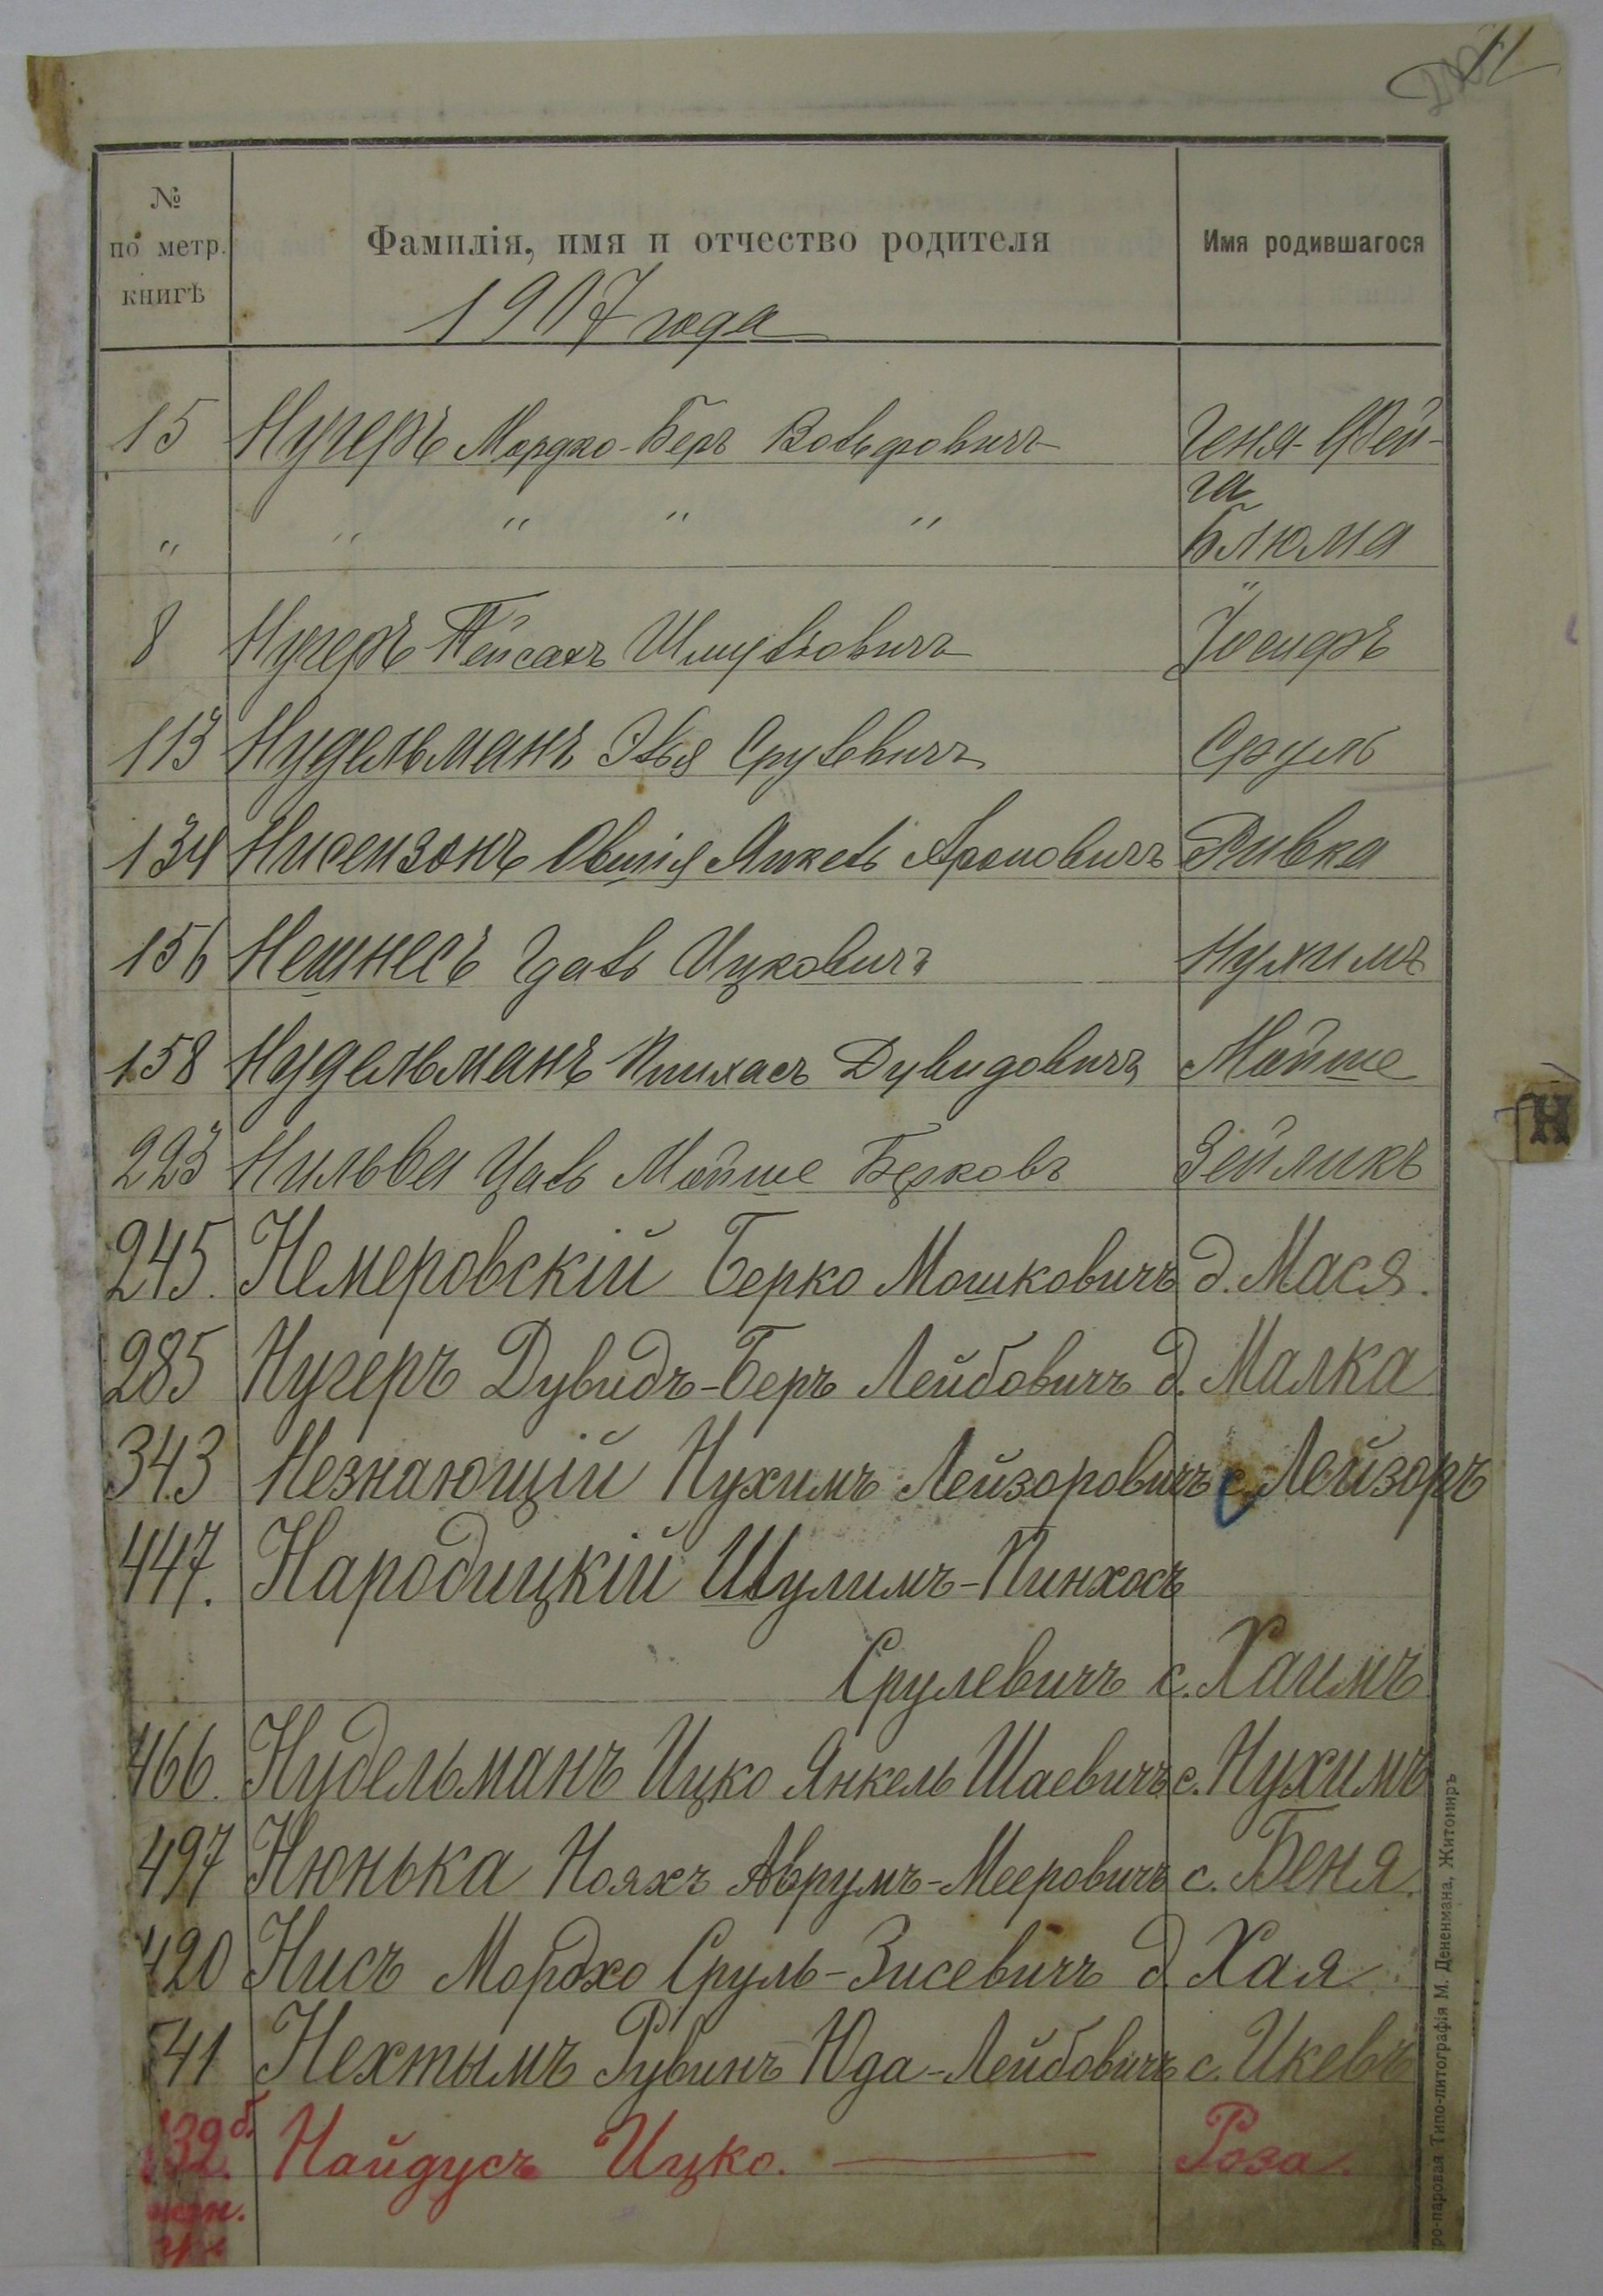 № по метр. книгѣ
Фамилія, имя и отчество родителя
Имя родившагося
1907 года
15 Нугеръ Мордко-Беръ Вольфовичъ Геня-Фей-
га
" " " " " Блюма
8 Нугеръ Пейсахъ Шмулевичъ Іосифъ
113 Нудельманъ Элья Срулевичъ Сруль
134 Нисензонъ Овшія Янкель Ароновичъ Ривка
156 Нешнесъ Гдаль Ицковичъ Нухимъ
158 Нудельманъ Пинхасъ Дувидовичъ Мойше
223 Нильва Цаль Мойше Берковъ Зейликъ
245. Немеровскій Берко Мошковичъ д. Мася.
285 Нугеръ Дувидъ-Беръ Лейбовичъ д. Малка
343 Незнающій Нухимъ Лейзоровичъ с. Лейзоръ
447. Народицкій Шулимъ-Пинхосъ
Срулевичъ с. Хаимъ
466. Нудельманъ Ицко Янкель Шаевичъ с. Нухимъ
497 Нюнька Нояхъ Аврумъ-Мееровичъ с. Беня.
420 Нисъ Мордхо Сруль-Зисевичъ д. Хая
41 Нехтымъ Рувинъ Юда-Лейбовичъ с. Икевъ
139 б. Найдусъ Ицко. — Роза.
Н
ро-паровая Типо-литографія М. Дененмана, Житомиръ